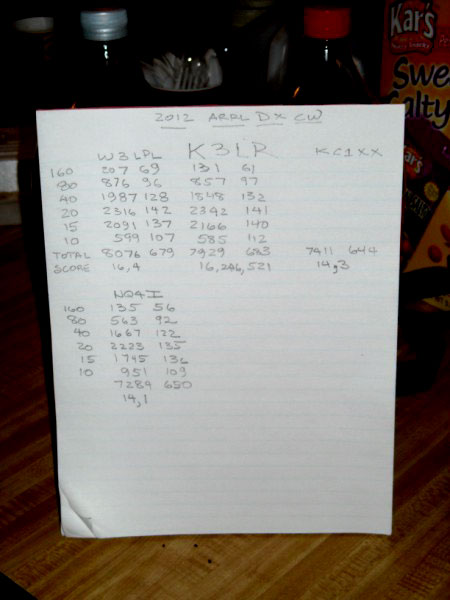 Kar's
Swe
alty
ar's
2012 ARRL DX CW
W3LPL K3LR KC1XX
160 207 69 131 61
80 876 96 857 97
40 1987 128 1848 132
20 2316 142 2342 141
15 2091 137 2166 140
10 599 107 585 112
TOTAL 8076 679 7929 683 7411 644
SCORE 16,4 16,246,521 14,3
NQ4I
160 135 56
80 563 92
40 1667 122
20 2223 135
15 1745 136
10 951 109
7289 650
14,1